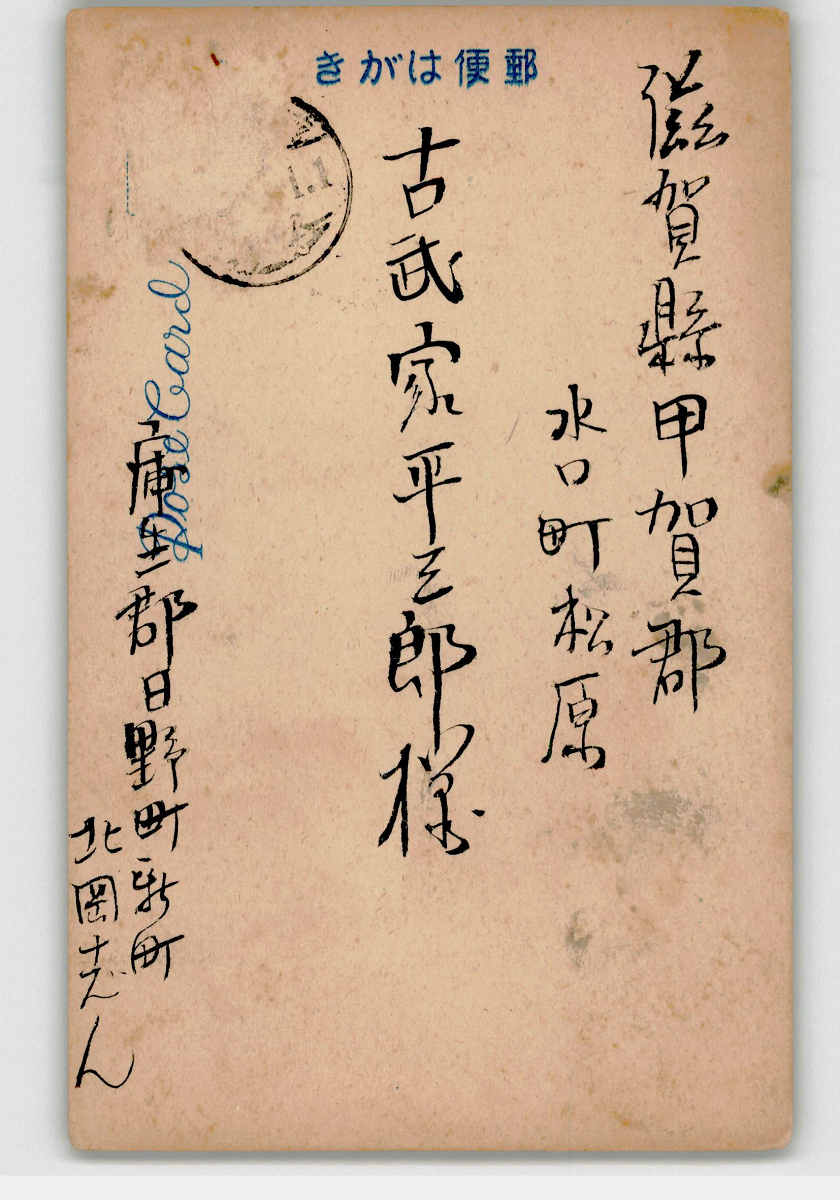 郵便はがき
滋賀縣甲賀郡
水口町松原
古武家平三郎様
1.1
Post Card
蒲生郡日野町新町
北岡